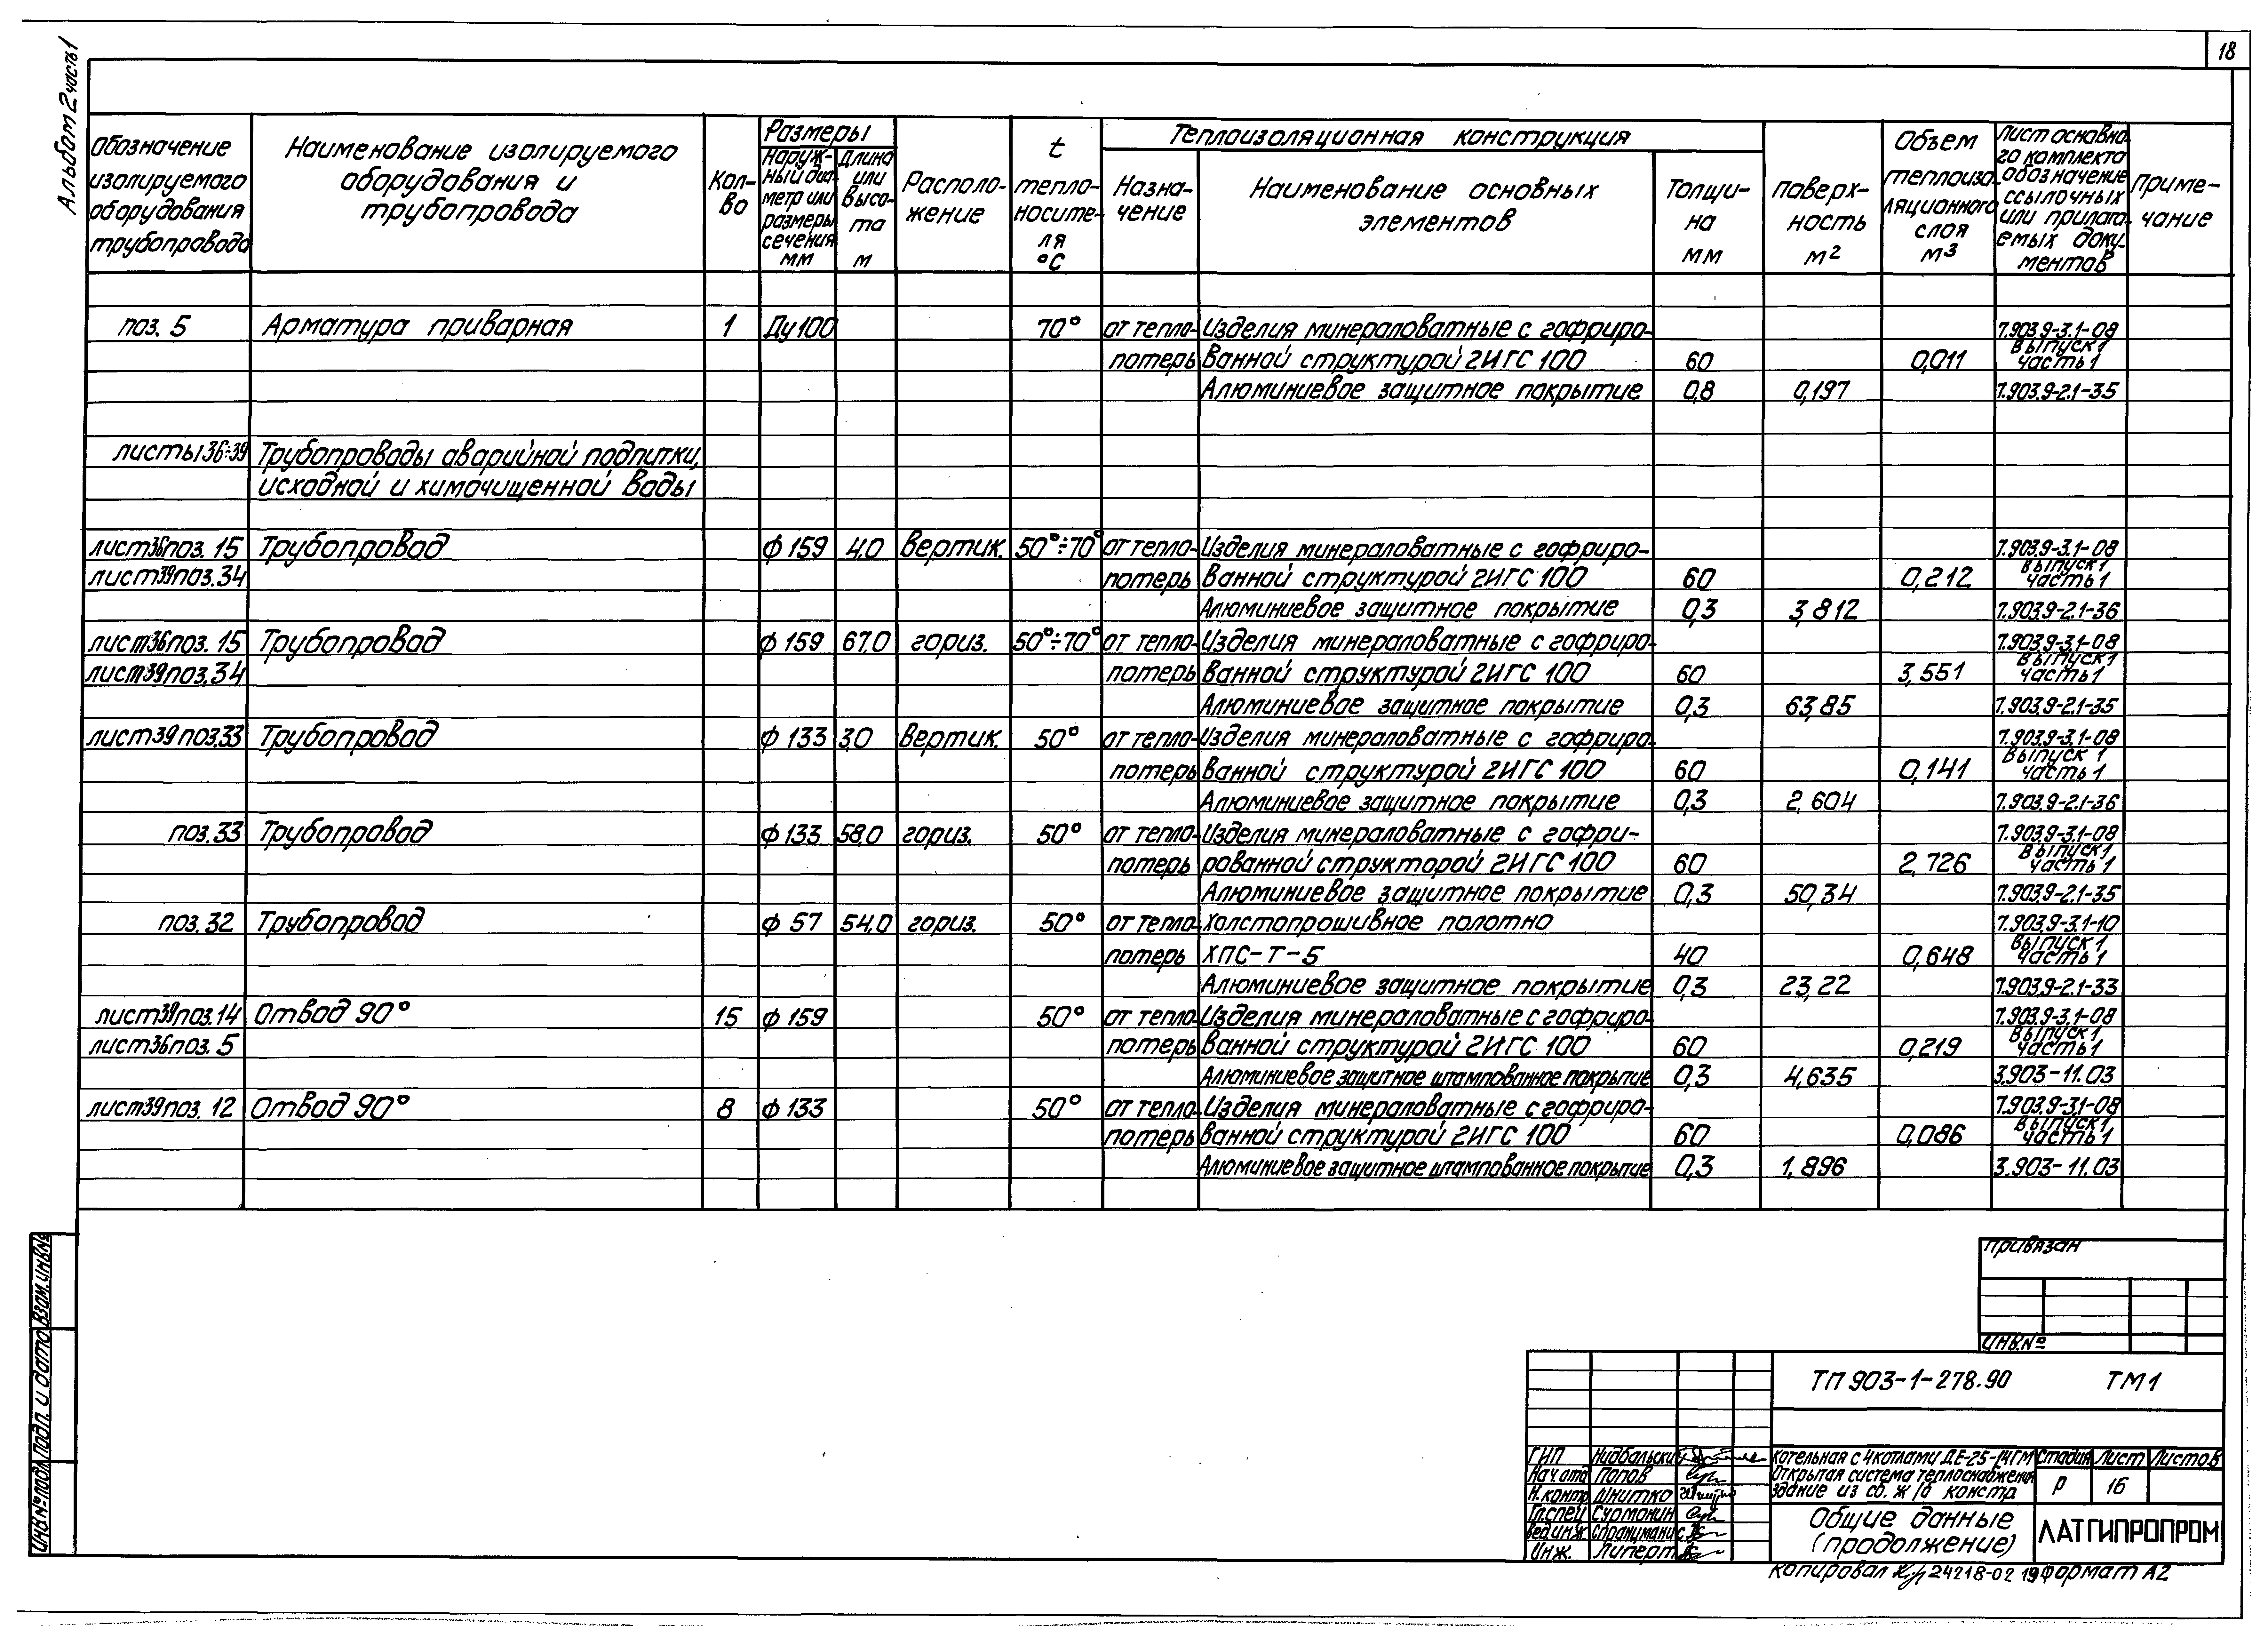 18
Альбом 2 часть 1
Обозначение изолируемого оборудования трубопровода
Наименование изолируемого оборудования и трубопровода
Кол-во
Размеры
Наруж-ный диа-метр или размеры сечения мм
Длина или высо-та м
Располо-жение
t тепло-носите-ля °С
Теплоизоляционная конструкция
Назна-чение
Наименование основных элементов
Толщи-на мм
Поверх-ность м2
Объем теплоизо-ляционного слоя м3
Лист основно-го комплекта обозначение ссылочных или прилага-емых доку-ментов
Приме-чание
поз. 5 Арматура приварная 1 Ду100 70° от тепло- Изделия минераловатные с гофриро- 7.903.9-3.1-08
потерь ванной структурой 2ИГС 100 60 0,011 выпуск 1 часть 1
Алюминиевое защитное покрытие 0,8 0,197 7.903.9-2.1-35
листы 36÷39 Трубопроводы аварийной подпитки,
исходной и химочищенной воды
лист 36 поз. 15 Трубопровод ф 159 4,0 вертик. 50°÷70° от тепло- Изделия минераловатные с гофриро- 7.903.9-3.1-08
лист 39 поз. 34 потерь ванной структурой 2ИГС 100 60 0,212 выпуск 1 часть 1
Алюминиевое защитное покрытие 0,3 3,812 7.903.9-2.1-36
лист 36 поз. 15 Трубопровод ф 159 67,0 гориз. 50°÷70° от тепло- Изделия минераловатные с гофриро- 7.903.9-3.1-08
лист 39 поз. 34 потерь ванной структурой 2ИГС 100 60 3,551 выпуск 1 часть 1
Алюминиевое защитное покрытие 0,3 63,85 7.903.9-2.1-35
лист 39 поз. 33 Трубопровод ф 133 3,0 вертик. 50° от тепло- Изделия минераловатные с гофриро- 7.903.9-3.1-08
потерь ванной структурой 2ИГС 100 60 0,141 выпуск 1 часть 1
Алюминиевое защитное покрытие 0,3 2,604 7.903.9-2.1-36
поз. 33 Трубопровод ф 133 58,0 гориз. 50° от тепло- Изделия минераловатные с гофри- 7.903.9-3.1-08
потерь рованной структорой 2ИГС 100 60 2,726 выпуск 1 часть 1
Алюминиевое защитное покрытие 0,3 50,34 7.903.9-2.1-35
поз. 32 Трубопровод ф 57 54,0 гориз. 50° от тепло- Холстопрошивное полотно 7.903.9-3.1-10
потерь ХПС-Т-5 40 0,648 выпуск 1, часть 1
Алюминиевое защитное покрытие 0,3 23,22 7.903.9-2.1-33
лист 39 поз. 14 Отвод 90° 15 ф 159 50° от тепло- Изделия минераловатные с гофриро- 7.903.9-3.1-08
лист 36 поз. 5 потерь ванной структурой 2ИГС 100 60 0,219 выпуск 1 часть 1
Алюминиевое защитное штампованное покрытие 0,3 4,635 3.903-11.03
лист 39 поз. 12 Отвод 90° 8 ф 133 50° от тепло- Изделия минераловатные с гофриро- 7.903.9-3.1-08
потерь ванной структурой 2ИГС 100 60 0,086 выпуск 1, часть 1
Алюминиевое защитное штампованное покрытие 0,3 1,896 3.903-11.03
Инв.№ подл. Подп. и дата Взам. инв.№
Привязан
Инв.№
ТП 903-1-278.90 ТМ1
ГИП Нидбальски
Нач. отд Попов
Н. контр Шнитко
Гл.спец Сурмонин
Вед.инж.
Инж. Липерт
Котельная с 4 котлами ДЕ-25-14ГМ
Открытая система теплоснабжения
здание из сб. ж/б констр.
Стадия Лист Листов
Р 16
Общие данные
(продолжение)
ЛАТГИПРОПРОМ
Копировал 24218-02 19 Формат А2